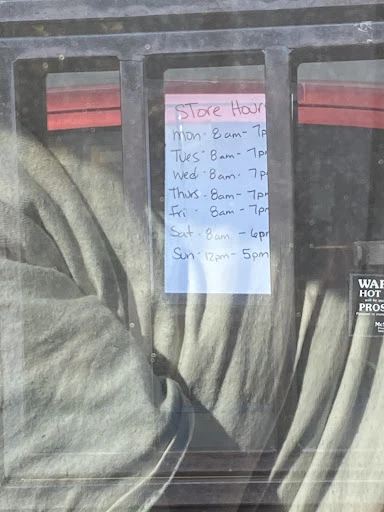 STore Hour
Mon - 8am - 7p
Tues - 8am - 7p
Wed - 8am - 7p
Thurs - 8am - 7p
Fri - 8am - 7p
Sat - 8am - 6p
Sun - 12pm - 5pm
HOT